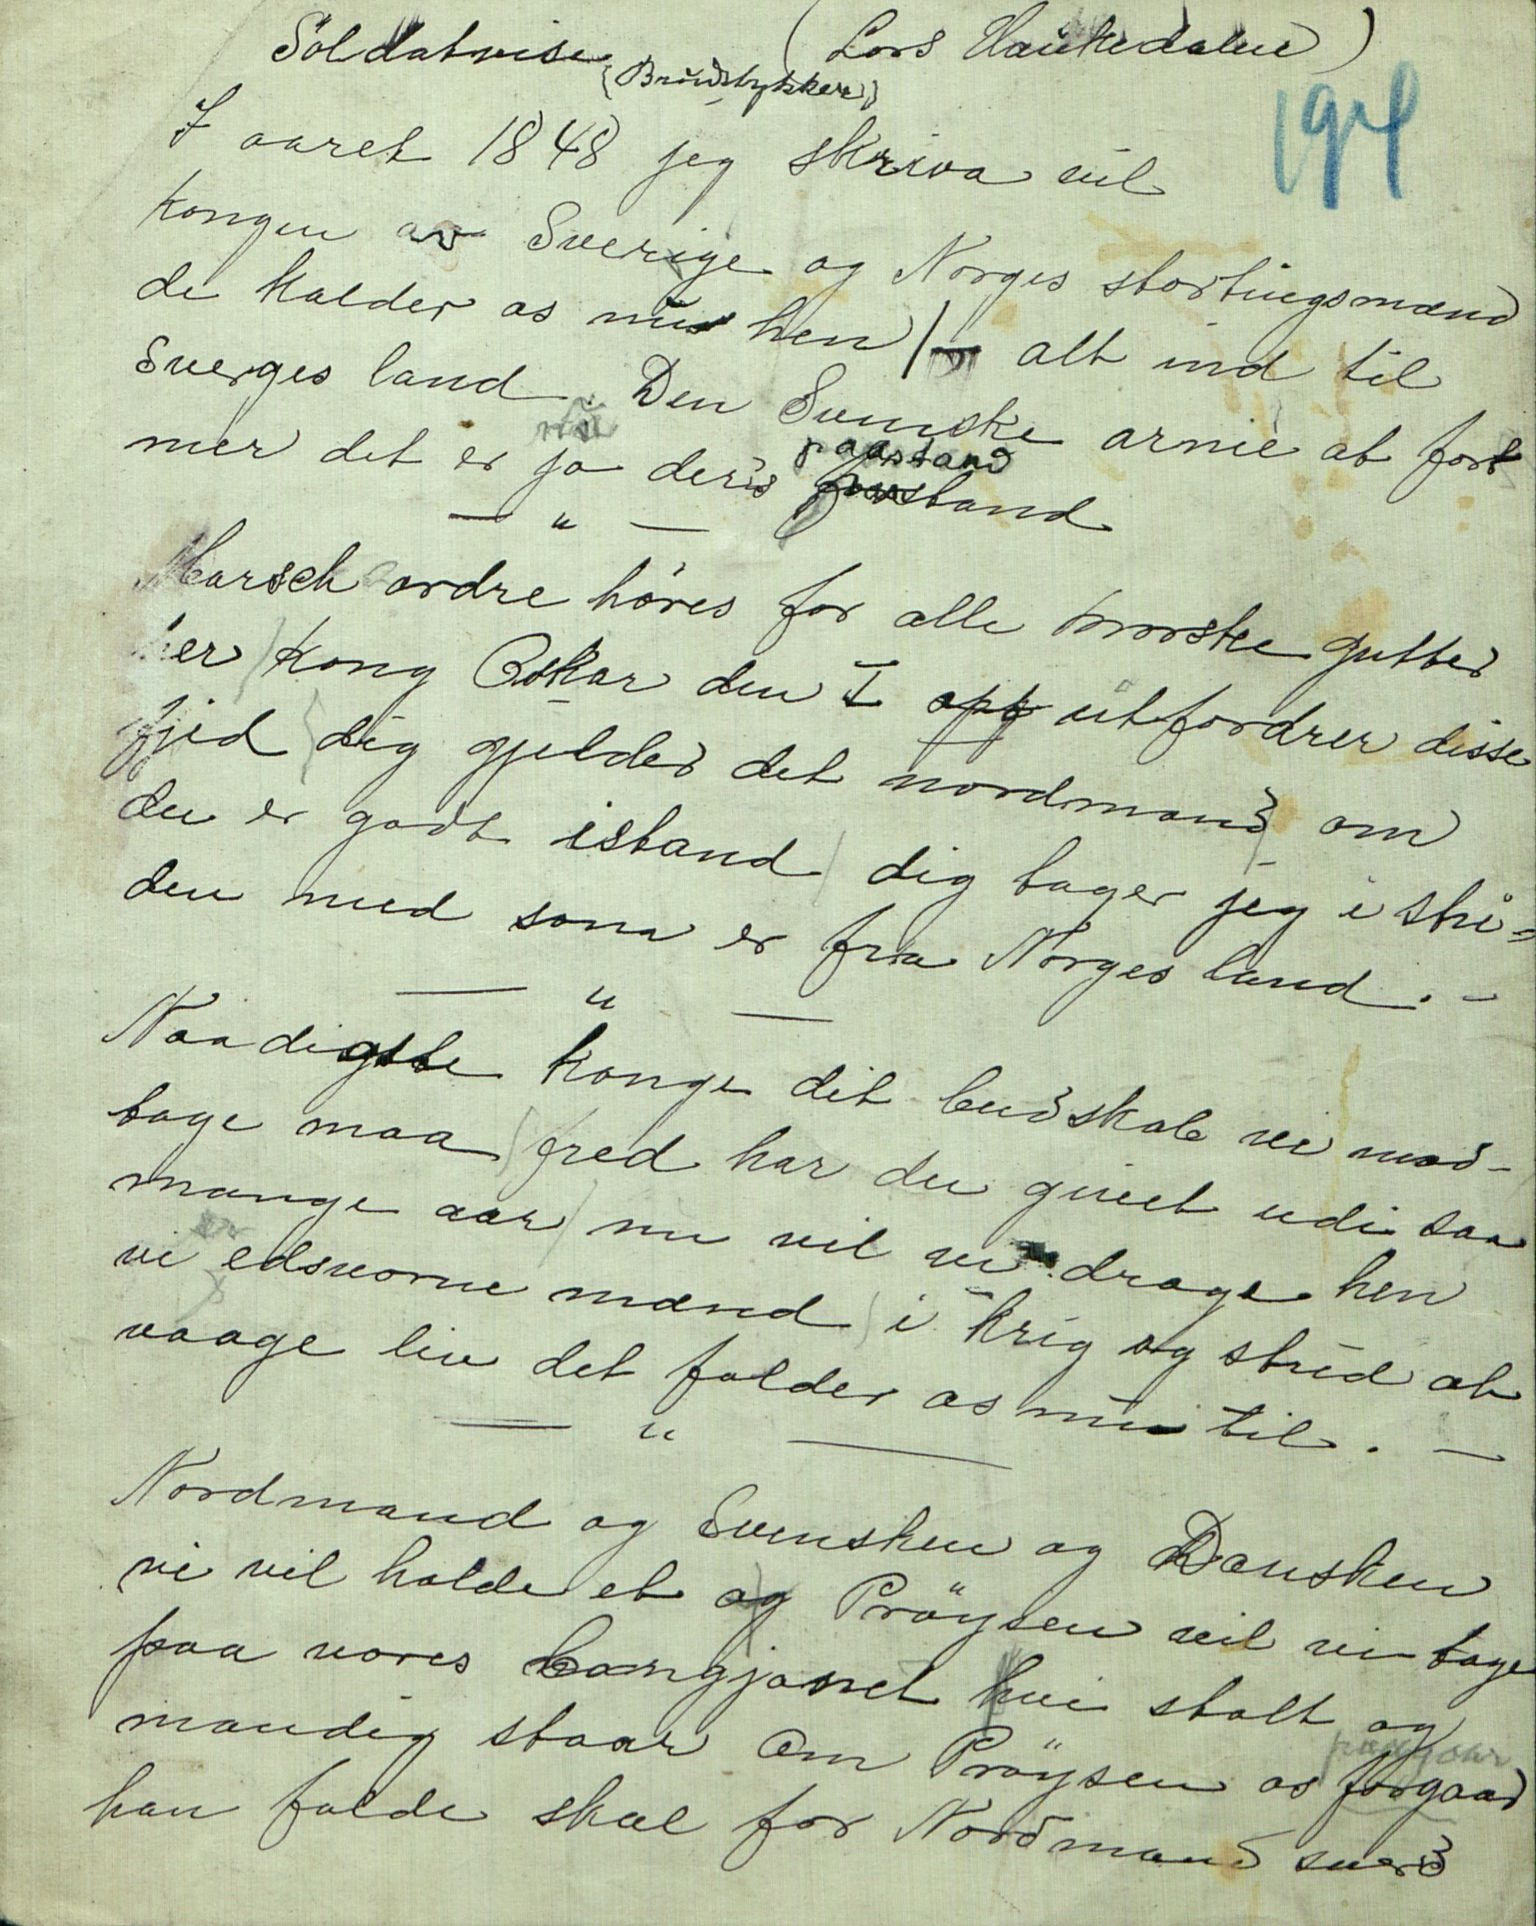 Soldatvise (Lars Haukedalen)
(Brudstykker)
194
I aaret 1848 jeg skriva vil
Kongen av Sverige og Norges stortingsmænd
de kalder os nu hen / alt ind til
Sverges land. Den Svenske armé at for
nu
mer det er jo deris paastand
— " —
Marsch ordre høres for alle norske gutter
her / Kong Oskar den I utfordrer disse
fjed / dig gjelder det nordmand / om
du er godt istand / dig tager jeg i stri-
den med som er fra Norges land. -
— " —
Naadigste konge dit budskab vi mod-
tage maa / fred har du givet udi saa
mange aar / nu vil vi drage hen
er
vi edsvorne mænd / i krig og strid at
vaage liv det falder os nu til. —
— " —
Nordmand og Svensken og Dansken
vi vil holde et og Prøysen vil vi tage
paa vores bangjonet hvi stolt og
mandig staar Om Prøysen os forgaar
paagaar
han falde skal for Nordmand sverd